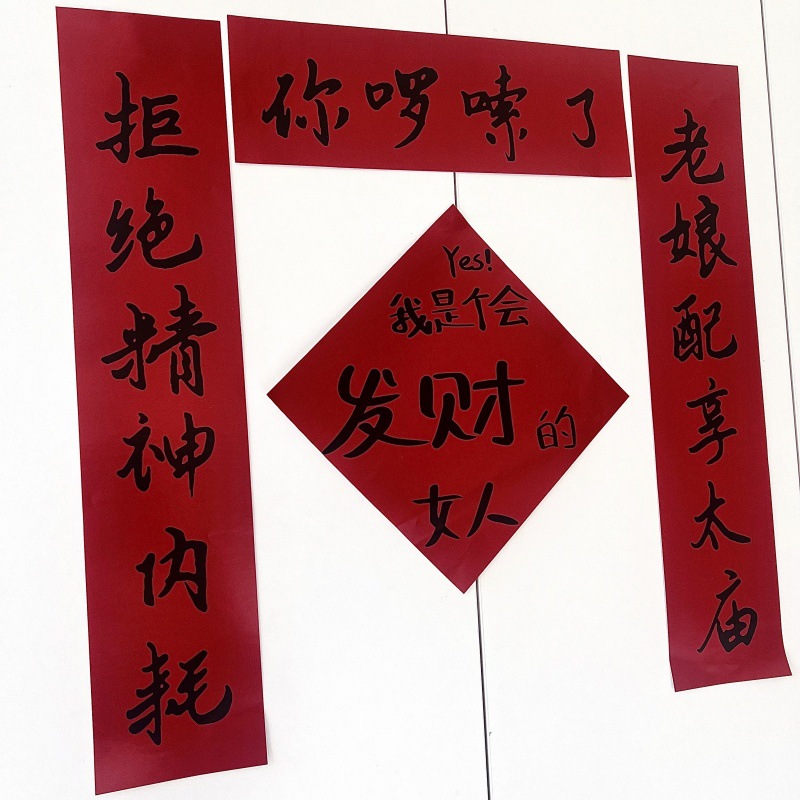 你啰嗦了
拒绝精神内耗
老娘配享太庙
Yes!
我是个会
发财的
女人